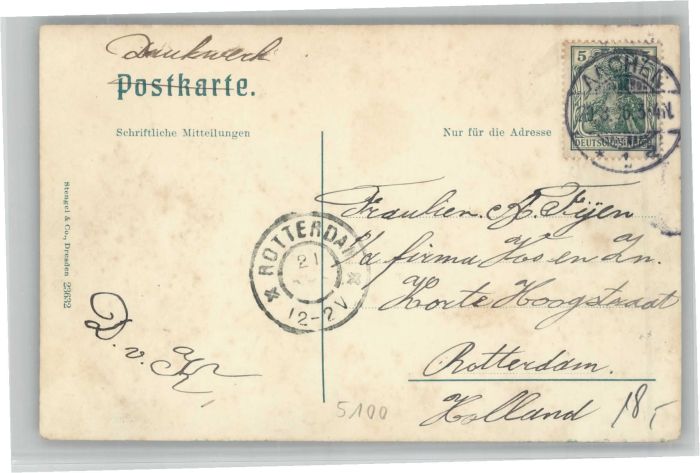 Drukwerk
Postkarte.
Schriftliche Mitteilungen
Nur für die Adresse
5 5
DEUTSCHES REICH
AACHEN
ROTTERDAM
21
12-2V
Fraulien A Fijen
firma Ko en Zn.
Korte Hoogstraat
Rotterdam.
Holland
18,-
D. v. K,
Stengel & Co., Dresden 23632
5100